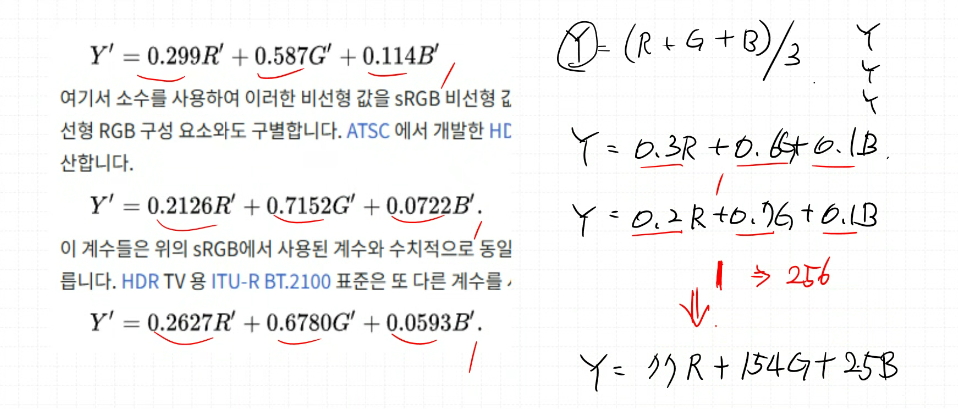 Y′ = 0.299R′ + 0.587G′ + 0.114B′
여기서 소수를 사용하여 이러한 비선형 값을 sRGB 비선형 값
선형 RGB 구성 요소와도 구별합니다. ATSC 에서 개발한 HD
산합니다.
Y′ = 0.2126R′ + 0.7152G′ + 0.0722B′.
이 계수들은 위의 sRGB에서 사용된 계수와 수치적으로 동일
릅니다. HDR TV 용 ITU-R BT.2100 표준은 또 다른 계수를
Y′ = 0.2627R′ + 0.6780G′ + 0.0593B′.
Y = (R + G + B)/3
Y
Y
Y
Y = 0.3R + 0.6G + 0.1B
1
Y = 0.2R + 0.7G + 0.1B
1 ⇒ 256
⇓
Y = 77R + 154G + 25B